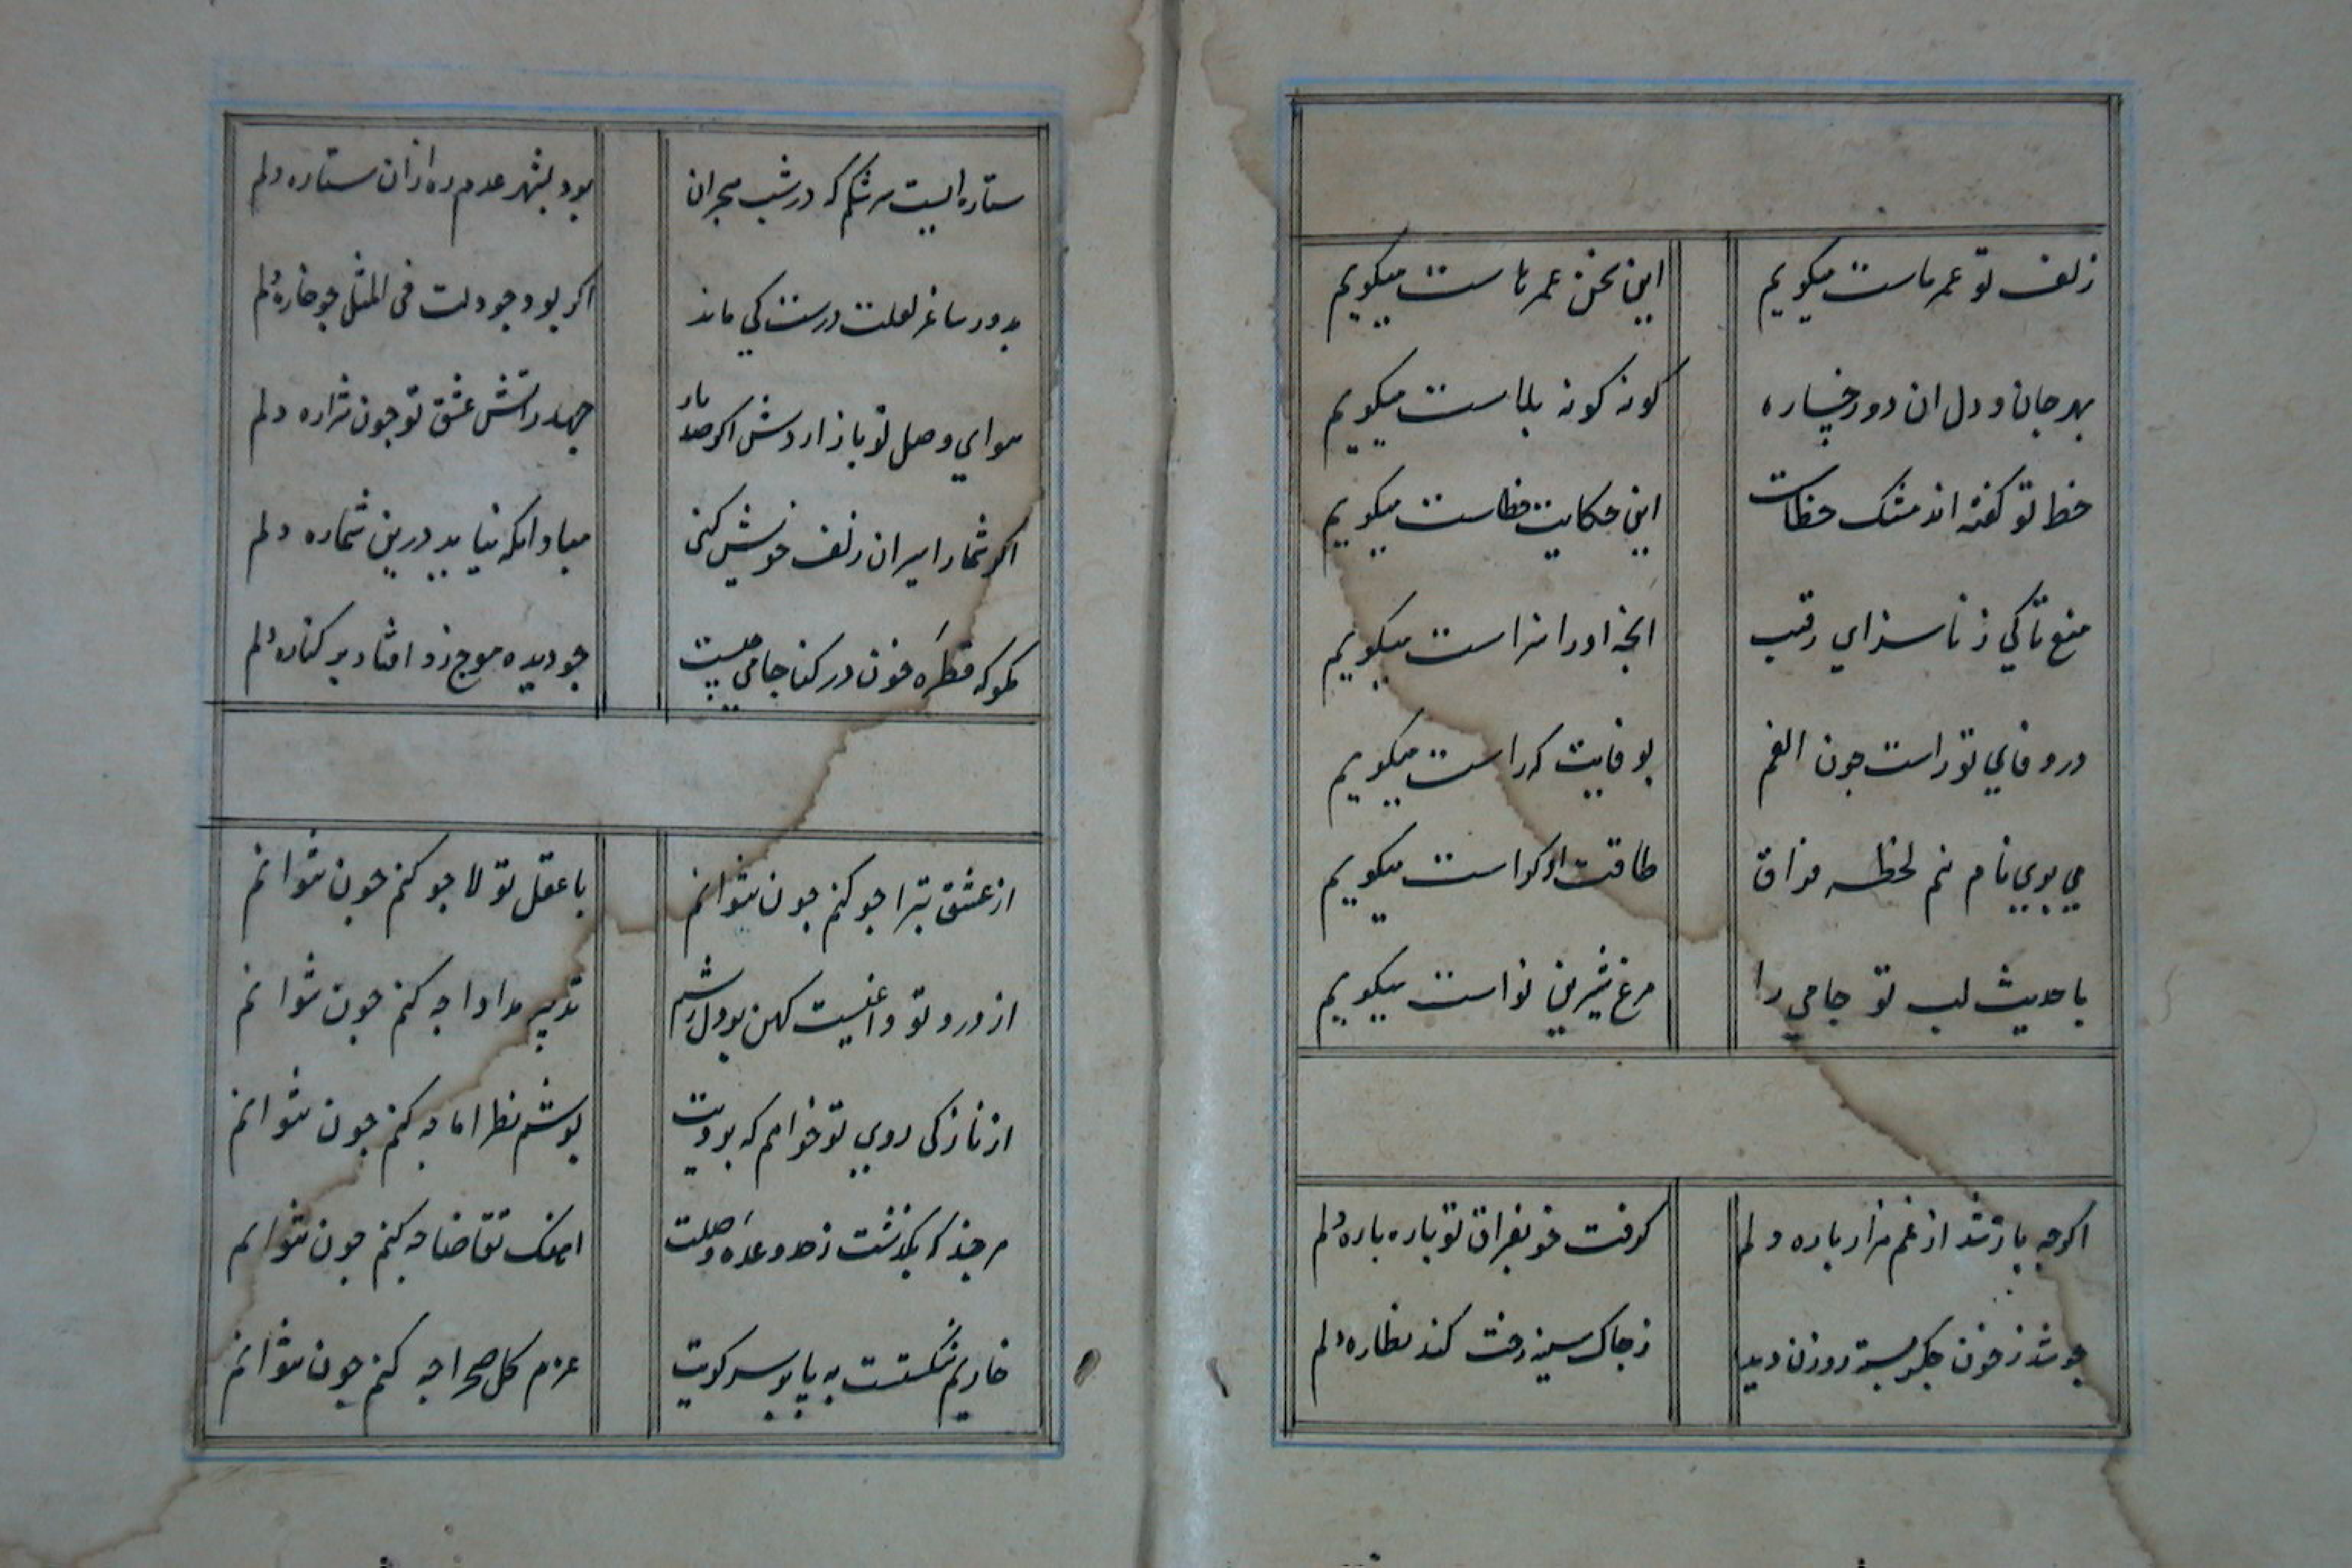 زلف تو عمر ماست میکویم این سخن عمرهاست میکویم
بهر جان و دل ان دو رخساره کونه کونه بلاست میکویم
خط تو کفته اند مشک خطاست این حکایت خطاست میکویم
منع تا کی ز ناسزای رقیب انجه اورا سزاست میکویم
در وفای تو راست جون الفم بو فایت که راست میکویم
می بوی نام نم لحظه فراق طاقت او کراست میکویم
با حدیث لب تو جامی را مرغ شیرین نواست میکویم
اکرجه باز شد از غم هزار باره دلم کرفت خو بفراق تو باره باره دلم
جو شد ز خون جکر بسته روزن دیده ز جاک سینه رخت کند نظاره دلم
ستاره ایست سرشکم که در شب هجران بود بشهر عدم ره ازان ستاره دلم
بدور ساغر لعلت درست کی ماند اکر بود جو دلت فی المثل جو خاره دلم
هوای وصل تو باز اردش اکر صد بار جهد ز اتش عشق تو جون شراره دلم
اکر شمار اسیران زلف خویش کنی مباد انکه نیاید درین شماره دلم
مکو که قطره خون در کنار جامی جیست جو دیده موج زد افتاد بر کناره دلم
از عشق تبرا جو کنم جون نتوانم با عقل تولا جو کنم جون نتوانم
از درد تو داغیست کهن بر دل ریشم تدبیر مداوا جه کنم جون نتوانم
از نازکی روی تو خواهم که برویت پوشم نظر اما جه کنم جون نتوانم
هرجند که بکذشت ز حد وعده وصلت اهنک تقاضا جه کنم جون نتوانم
خاریم شکستست به پا بر سر کویت عزم کل صحرا جه کنم جون نتوانم